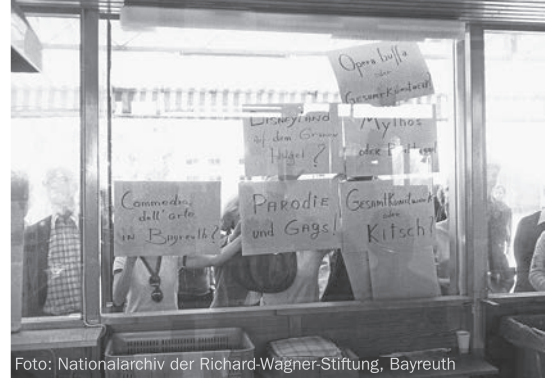 Opera buffa
oder
Gesamtkunstwerk
DISNEYLAND
auf dem Grünen
Hügel?
Mythos
oder
Commedia
dell'arte
in Bayreuth?
PARODIE
und Gags!
Gesamtkunstwerk
oder
Kitsch?
Foto: Nationalarchiv der Richard-Wagner-Stiftung, Bayreuth